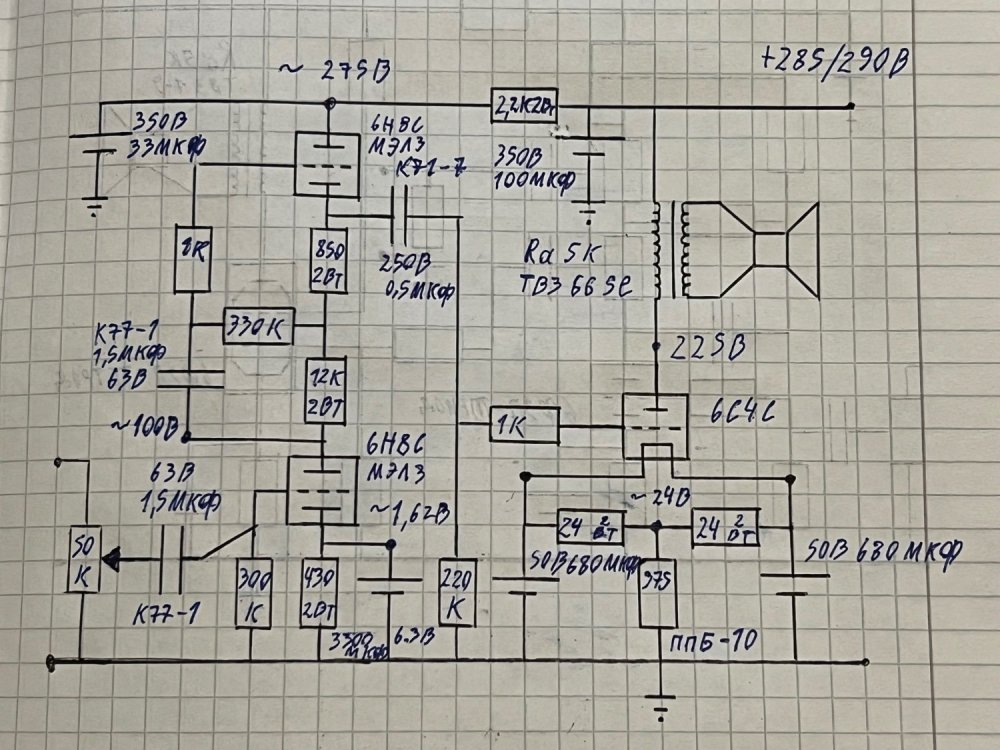 ~ 275В
+285/290В
350В
33МКФ
6Н8С
МЭЛЗ
2,2К2Вт
К71-7
350В
100МКФ
1К
850
2ВТ
250В
0,5МКФ
Ra 5К
ТВЗ 66 SE
К77-1
1,5МКФ
63В
330К
12К
2ВТ
225В
~100В
6С4С
1К
6Н8С
МЭЛЗ
63В
1,5МКФ
~1,62В
~24В
24 2ВТ
24 2ВТ
50
К
К77-1
300
К
430
2ВТ
3300
МКФ
6.3В
220
К
50В 680МКФ
975
50В 680МКФ
ППБ-10